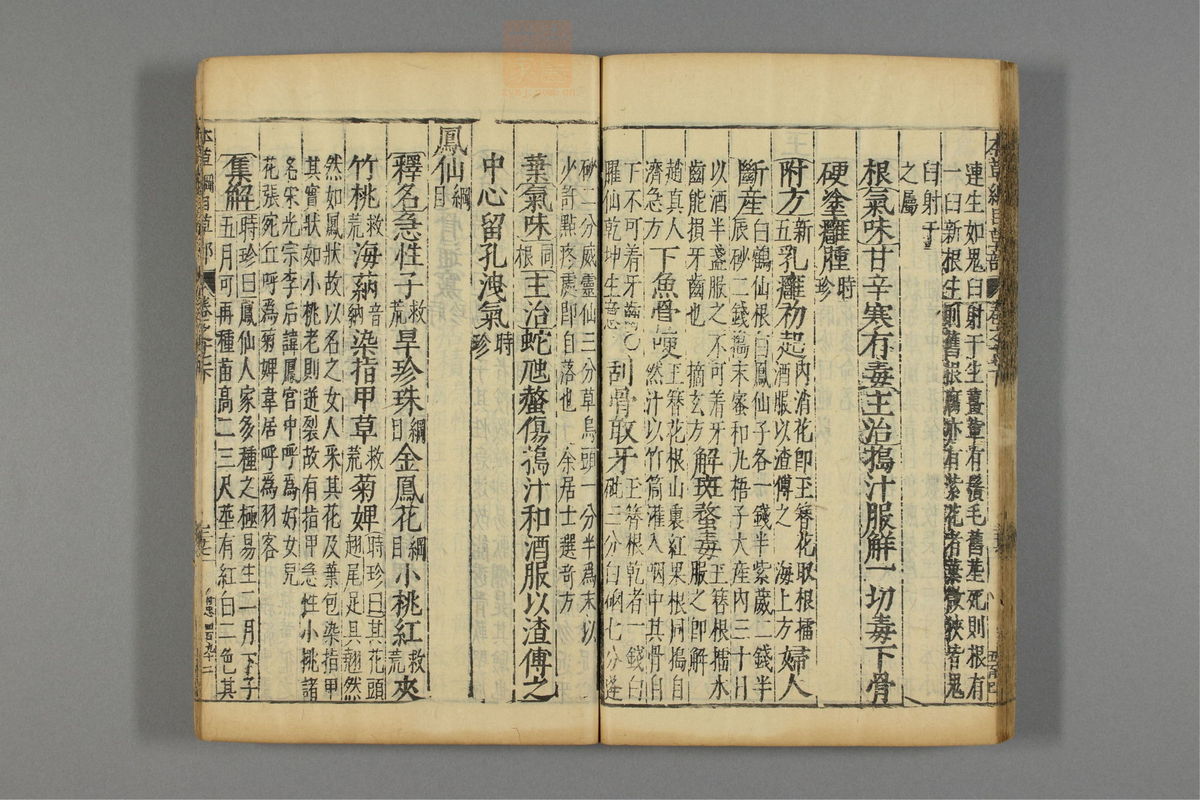 連生如鬼臼射干生薑輩有鬚毛舊莖死則根有
一臼新根生則舊根腐亦有紫花者葉微狹皆鬼
臼射干
之屬
根氣味甘辛寒有毒主治搗汁服解一切毒下骨
硬塗癰腫時珍
附方新五乳癰初起內消花即玉簪花取根擂酒服以渣傅之海上方婦人
斷產白鶴仙根白鳳仙子各一錢半紫葳二錢半辰砂二錢搗末蜜和丸梧子大產內三十日
以酒半盞服之不可着牙玉簪根擂水
齒能損牙齒也摘玄方解斑蝥毒服之即解
趙真人下魚骨哽玉簪花根山裏紅果根同搗自
濟急方然汁以竹筒灌入咽中其骨自
下不可着牙齒玉簪根乾者一錢白
臞仙乾坤生意刮骨取牙砒三分白硇七分蓬
砂二分威靈仙三分草烏頭一分半爲末以
少許點疼處即自落也余居士選奇方
葉氣味同根主治蛇虺螫傷搗汁和酒服以渣傅之
中心留孔洩氣時珍
鳳仙綱目
釋名急性子救荒旱珍珠綱目金鳳花綱目小桃紅救荒夾
竹桃救荒海蒳音納染指甲草救荒菊婢時珍曰其花頭翅尾足具翹然
然如鳳狀故以名之女人采其花及葉包染指甲
其實狀如小桃老則迸裂故有指甲急性小桃諸
名宋光宗李后諱鳳宮中呼爲好女兒
花張宛丘呼爲菊婢韋居呼爲羽客
集解時珍曰鳳仙人家多種之極易生二月下子
五月可再種苗高二三尺莖有紅白二色其
本草綱目草部